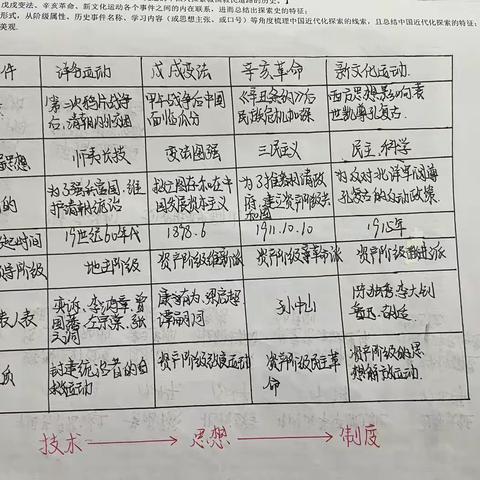 戊戌变法、辛亥革命、新文化运动各个事件之间的内在联系,进而总结出探索史的特征:
形式,从阶级属性、历史事件名称、学习内容(或思想主张、或口号)等角度梳理中国近代化探索的线索,且总结中国近代化探索的特征;
美观.
件 洋务运动 戊戌变法 辛亥革命 新文化运动
第二次鸦片战争后,清朝内外交困 甲午战争后中国面临瓜分 《辛丑条约》后民族危机加深 西方思想影响袁世凯尊孔复古
思想 师夷长技 变法图强 三民主义 民主、科学
的 为了强兵富国、维护清朝统治 救亡图存在中国发展资本主义 为了推翻清政府,建立资产阶级共和国 为反对北洋军阀尊孔复古的反动政策.
起时间 19世纪60年代 1898.6 1911.10.10 1915年
阶级 地主阶级 资产阶级维新派 资产阶级革命派 资产阶级激进派
代表人 奕䜣、李鸿章、曾国藩、左宗棠、张之洞 康有为、梁启超 谭嗣同 孙中山 陈独秀、李大钊 鲁迅、胡适
质 封建统治者的自救运动 资产阶级改良运动 资产阶级民主革命 资产阶级的思想解放运动.
技术 → 思想 → 制度